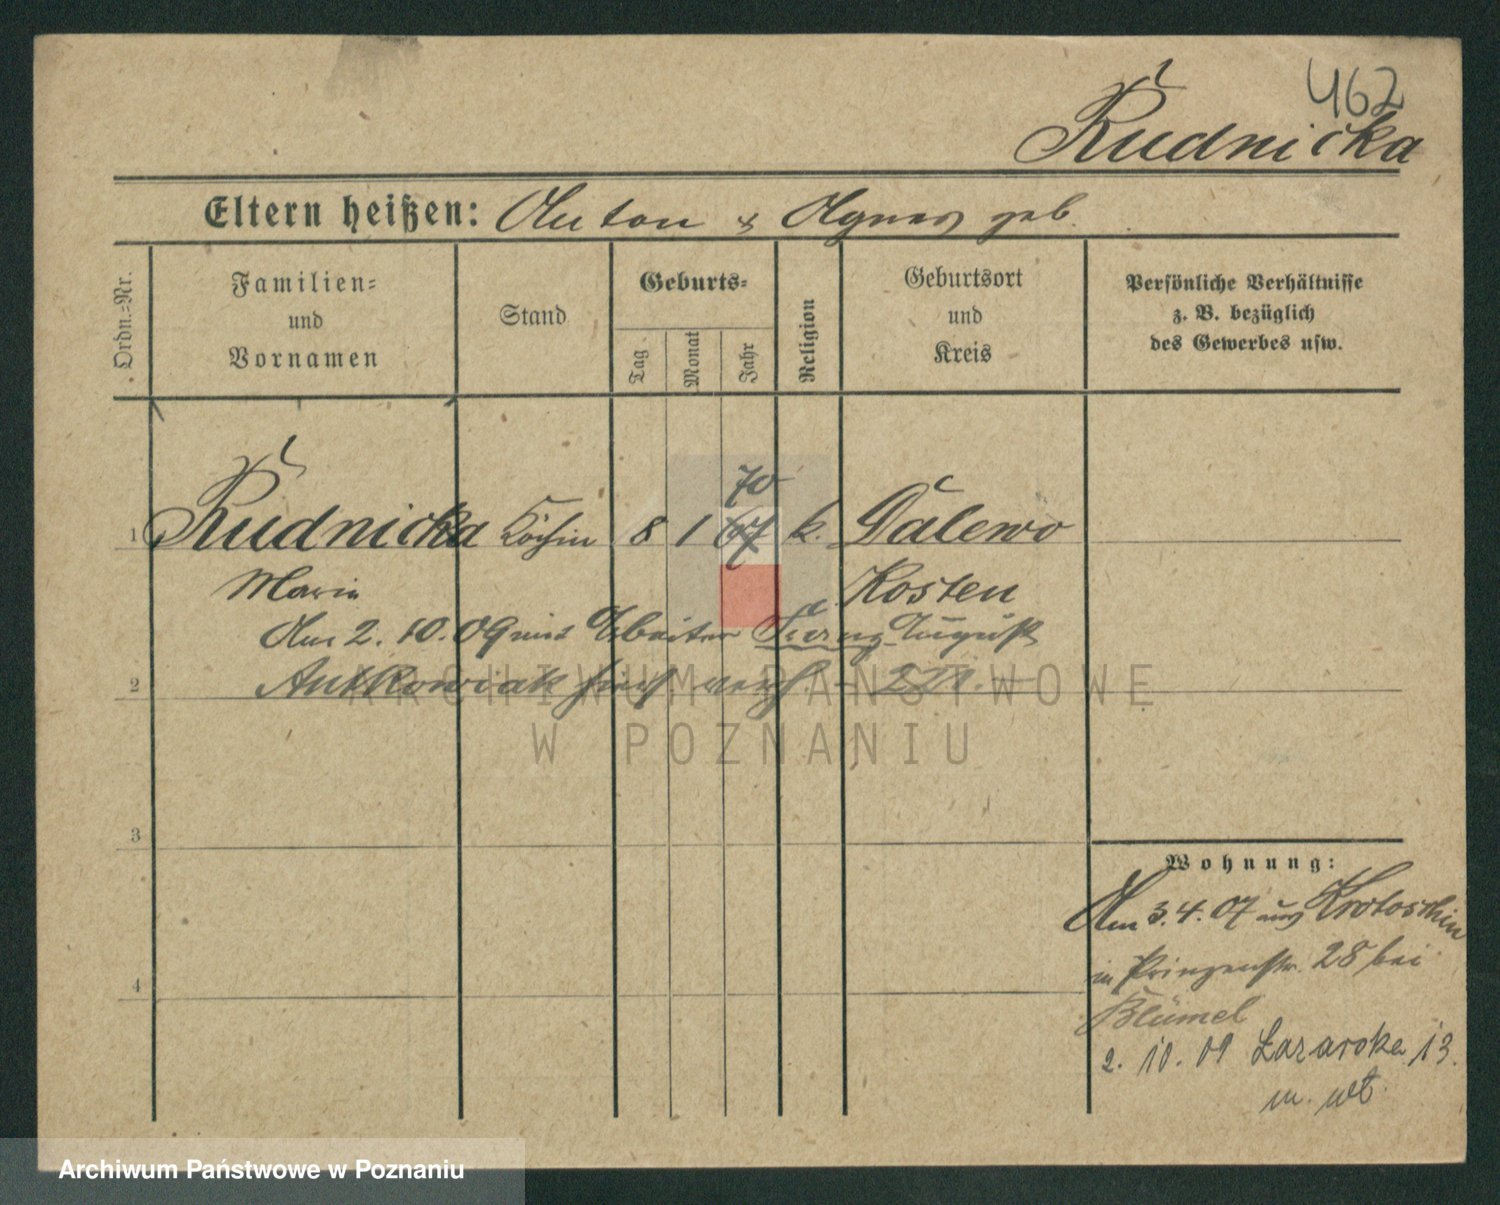 462
Rudnicka
Eltern heißen: Anton & Agnes geb.
Ordn.-Nr.
Familien-
und
Vornamen
Stand
Geburts-
Tag
Monat
Jahr
Religion
Geburtsort
und
Kreis
Persönliche Verhältnisse
z. B. bezüglich
des Gewerbes usw.
70
1 Rudnicka Köchin 8 1 67 k. Dalewo
Marie Kosten
Am 2. 10. 09 mit Arbeiter Franz August
2 Antkowiak hier verh.
3
4
Wohnung:
Am 3. 4. 07 aus Krotoschin
in Prinzenstr. 28 bei
Blümel
2. 10. 09 Lazarska 13.
ARCHIWUM PAŃSTWOWE
W POZNANIU
Archiwum Państwowe w Poznaniu